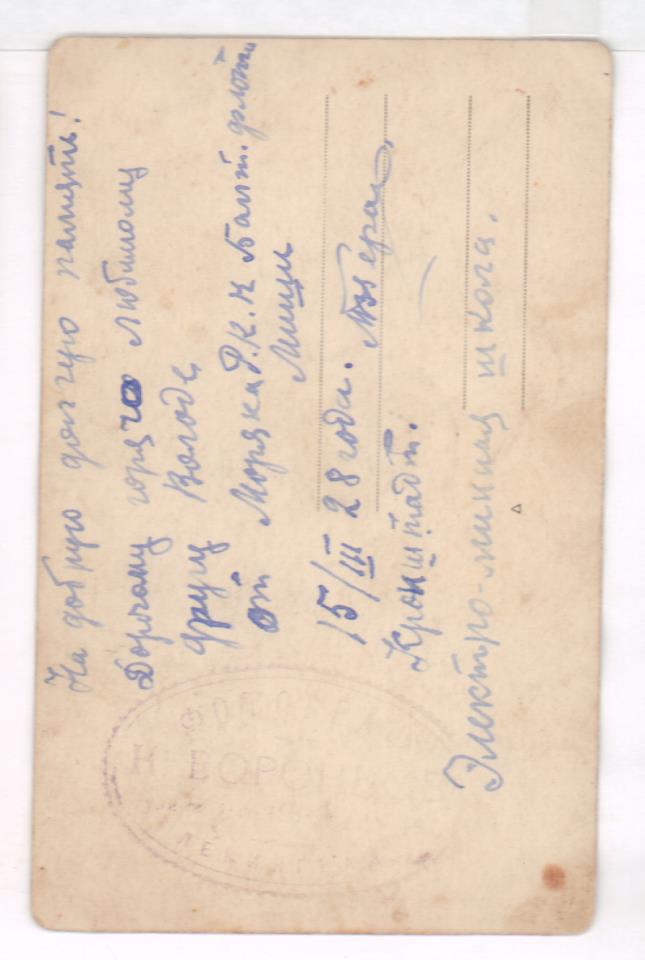 На добрую долгую память!
Дорогому горячо любимому
другу Володе
от Моряка Р.К.К Балт. флота
Миши
15/III 28 года.
Кронштадт.
Электро-минная школа.